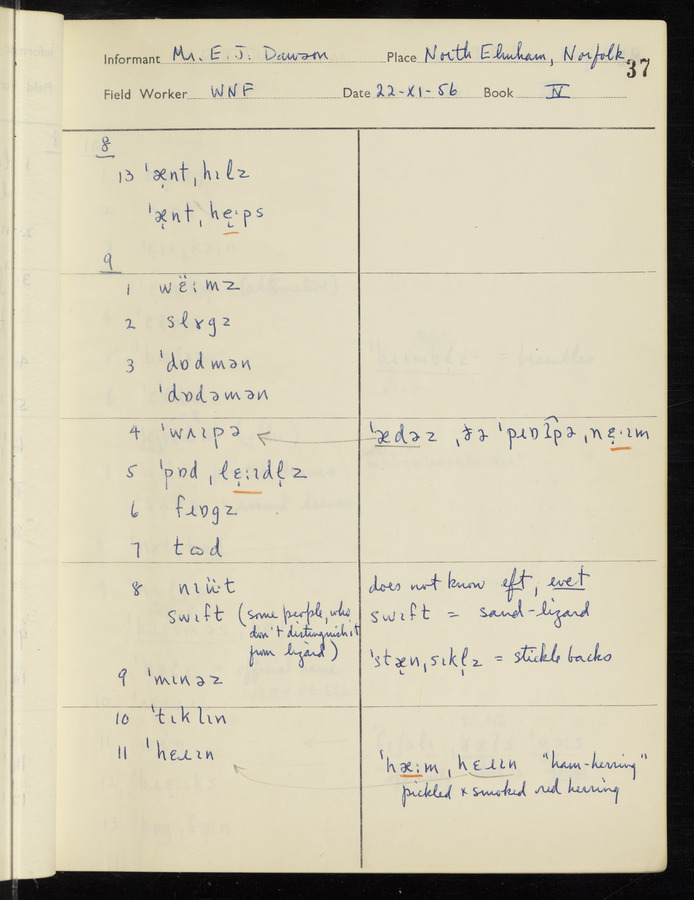 Informant Mr. E. J. Dawson Place North Elmham, Norfolk 37
Field Worker WNF Date 22-XI-56 Book IV
8
13 ˈæ̣nt,hɪlz
ˈæ̣nt,hẹːps
9
1 wɛ̈ːmz
2 slɤgz
3 ˈdɒdmən
ˈdɒdəmən
4 ˈwʌɪpə ˈædəz
5 ˈpɒd,lẹːɪdl̩z
6 fɹɒgz
7 tɷd
8 nɪüːt does not know eft, evet
swɪft (some people, who swɪft = sand-lizard
don't distinguish it
from lizard) ˈstæn,sɪkl̩z = stickle backs
9 ˈmɪnəz
10 ˈtɪklɪn
11 ˈhɛɹɪn ˈhæːm,hɛɹɪn "ham-herring"
pickled & smoked red herring